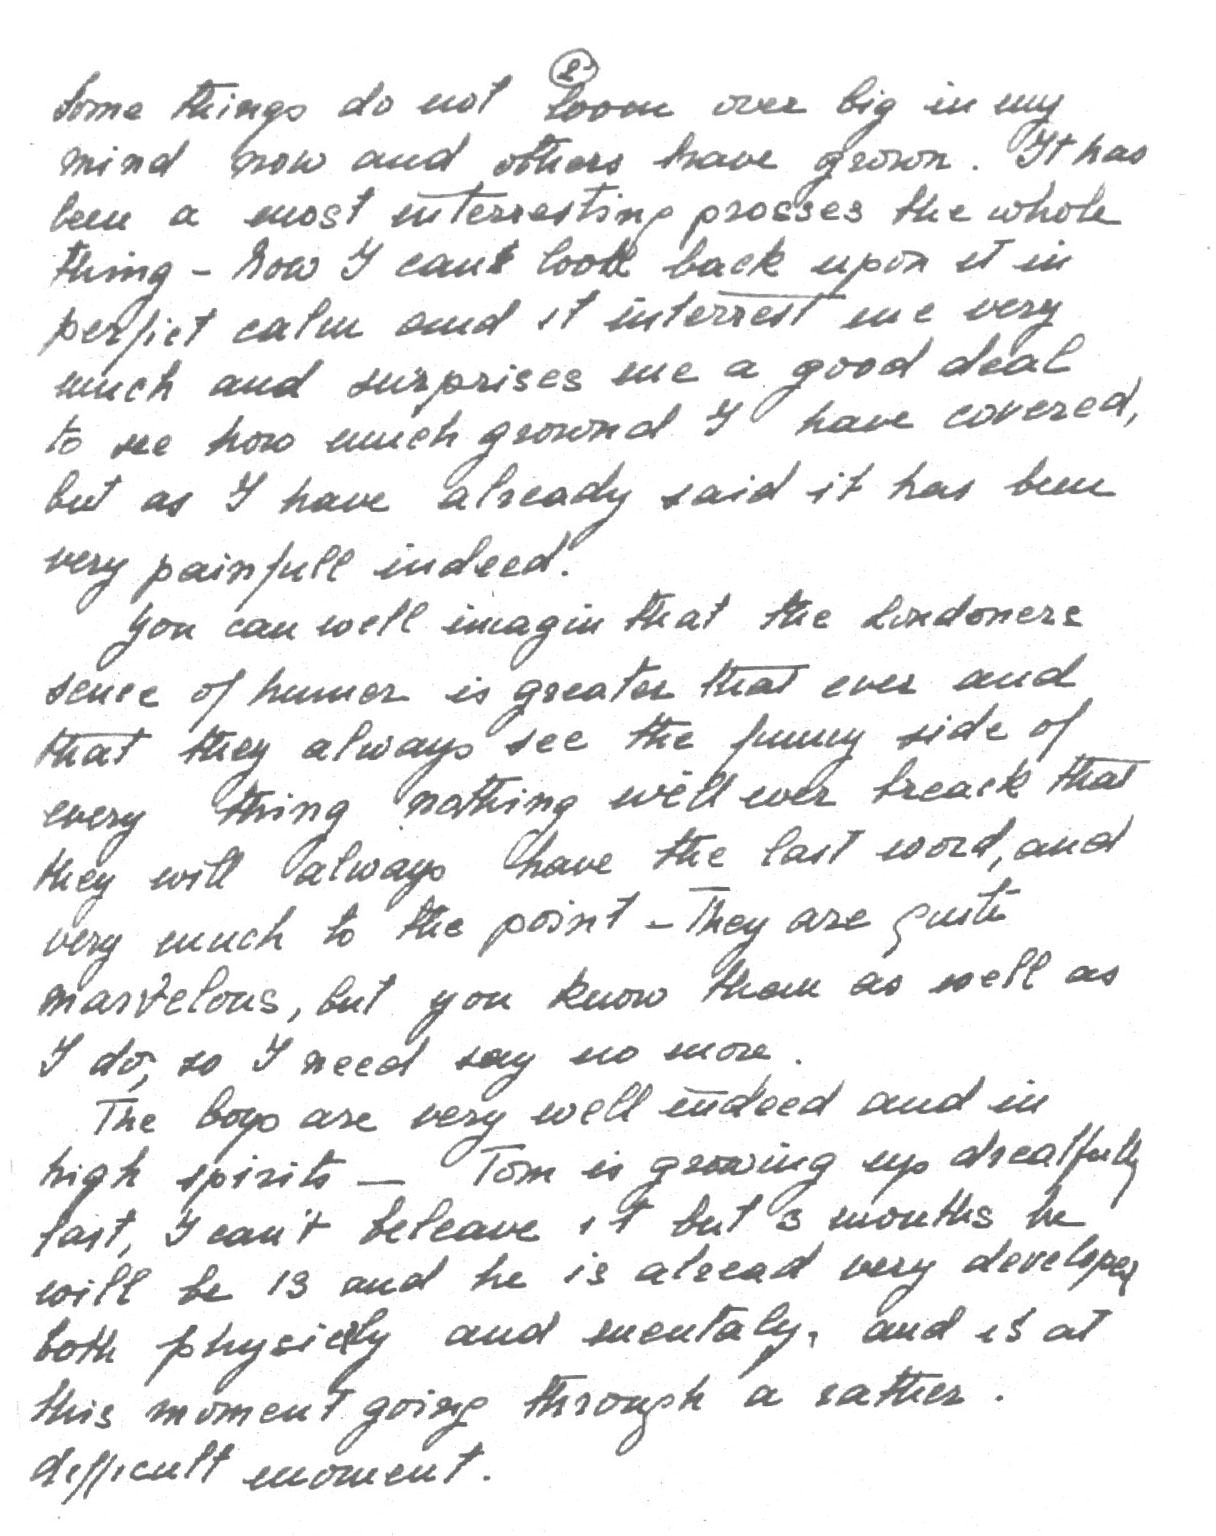 2
Some things do not loom over big in my
mind now and others have grown. It has
been a most interresting prosses the whole
thing - Now I can look back upon it in
perfict calm and it interrest me very
much and surprises me a good deal
to see how much grownd I have covered,
but as I have already said it has been
very painfull indeed.
You can well imagin that the Londoners
sence of humer is greater that ever and
that they always see the funny side of
every thing nothing will ever breack that
they will always have the last word, and
very much to the point - They are quite
marvelous, but you know them as well as
I do, so I need say no more.
The boys are very well indeed and in
high spirits — Tom is growing up
fast, I can't beleave it but 3 months he
will be 13 and he is alread very developed
both physicly and mentaly, and is at
this moment going through a rather.
difficult moment.